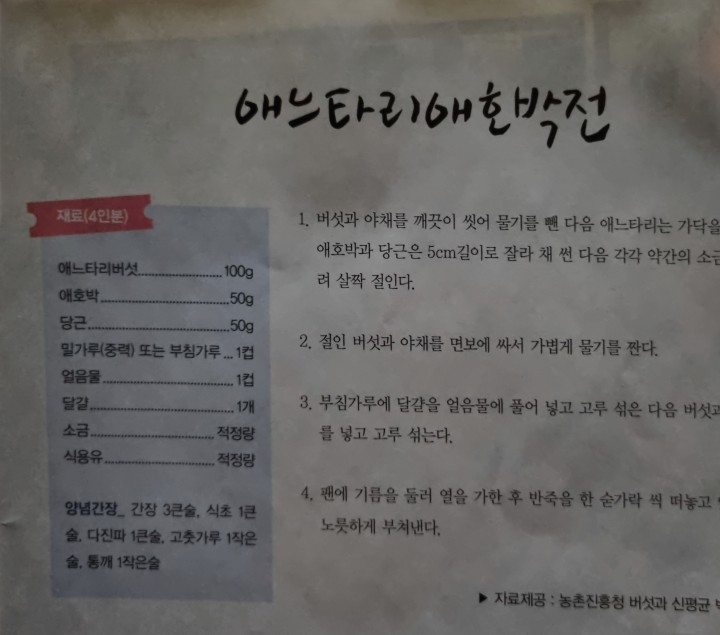 애느타리애호박전
재료(4인분)
애느타리버섯 100g
애호박 50g
당근 50g
밀가루(중력) 또는 부침가루 1컵
얼음물 1컵
달걀 1개
소금 적정량
식용유 적정량
양념간장_ 간장 3큰술, 식초 1큰
술, 다진파 1큰술, 고춧가루 1작은
술, 통깨 1작은술
1. 버섯과 야채를 깨끗이 씻어 물기를 뺀 다음 애느타리는 가닥을
애호박과 당근은 5cm길이로 잘라 채 썬 다음 각각 약간의 소금
려 살짝 절인다.
2. 절인 버섯과 야채를 면보에 싸서 가볍게 물기를 짠다.
3. 부침가루에 달걀을 얼음물에 풀어 넣고 고루 섞은 다음 버섯과
를 넣고 고루 섞는다.
4. 팬에 기름을 둘러 열을 가한 후 반죽을 한 숟가락 씩 떠놓고
노릇하게 부쳐낸다.
▶ 자료제공 : 농촌진흥청 버섯과 신평균